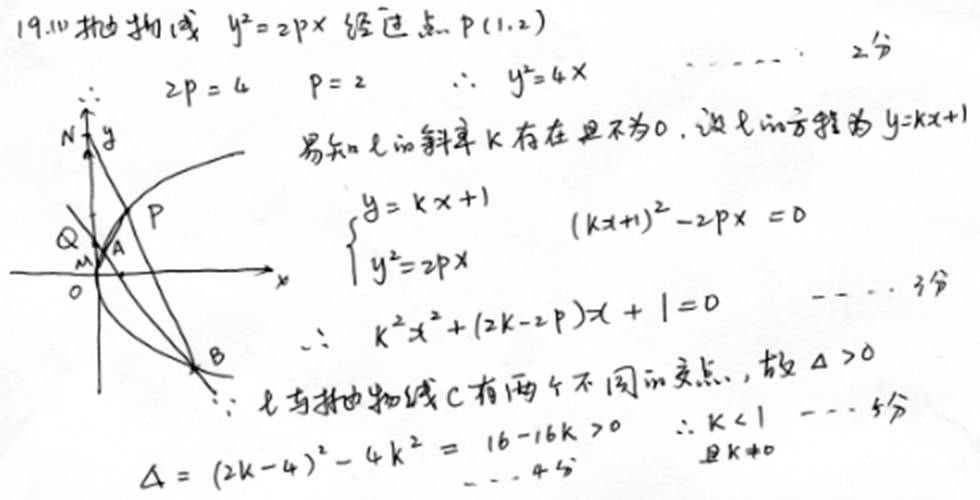 19.(1) 抛物线 y²=2px 经过点 P(1.2)
∴ 2P = 4 P = 2 ∴ y²=4x ······ 2分
易知 l 的斜率 K 存在且不为0. 设 l 的方程为 y=kx+1
{ y = kx+1
y²=2px
(kx+1)²-2px = 0
∴ k²x²+(2k-2P)x + 1 = 0 ······ 3分
∵ l 与抛物线 C 有两个不同的交点, 故 Δ>0
Δ = (2k-4)²-4k² = 16-16k>0 ∴ k<1 ······ 5分
····· 4分 且k≠0
N y
Q A P
M
O x
B